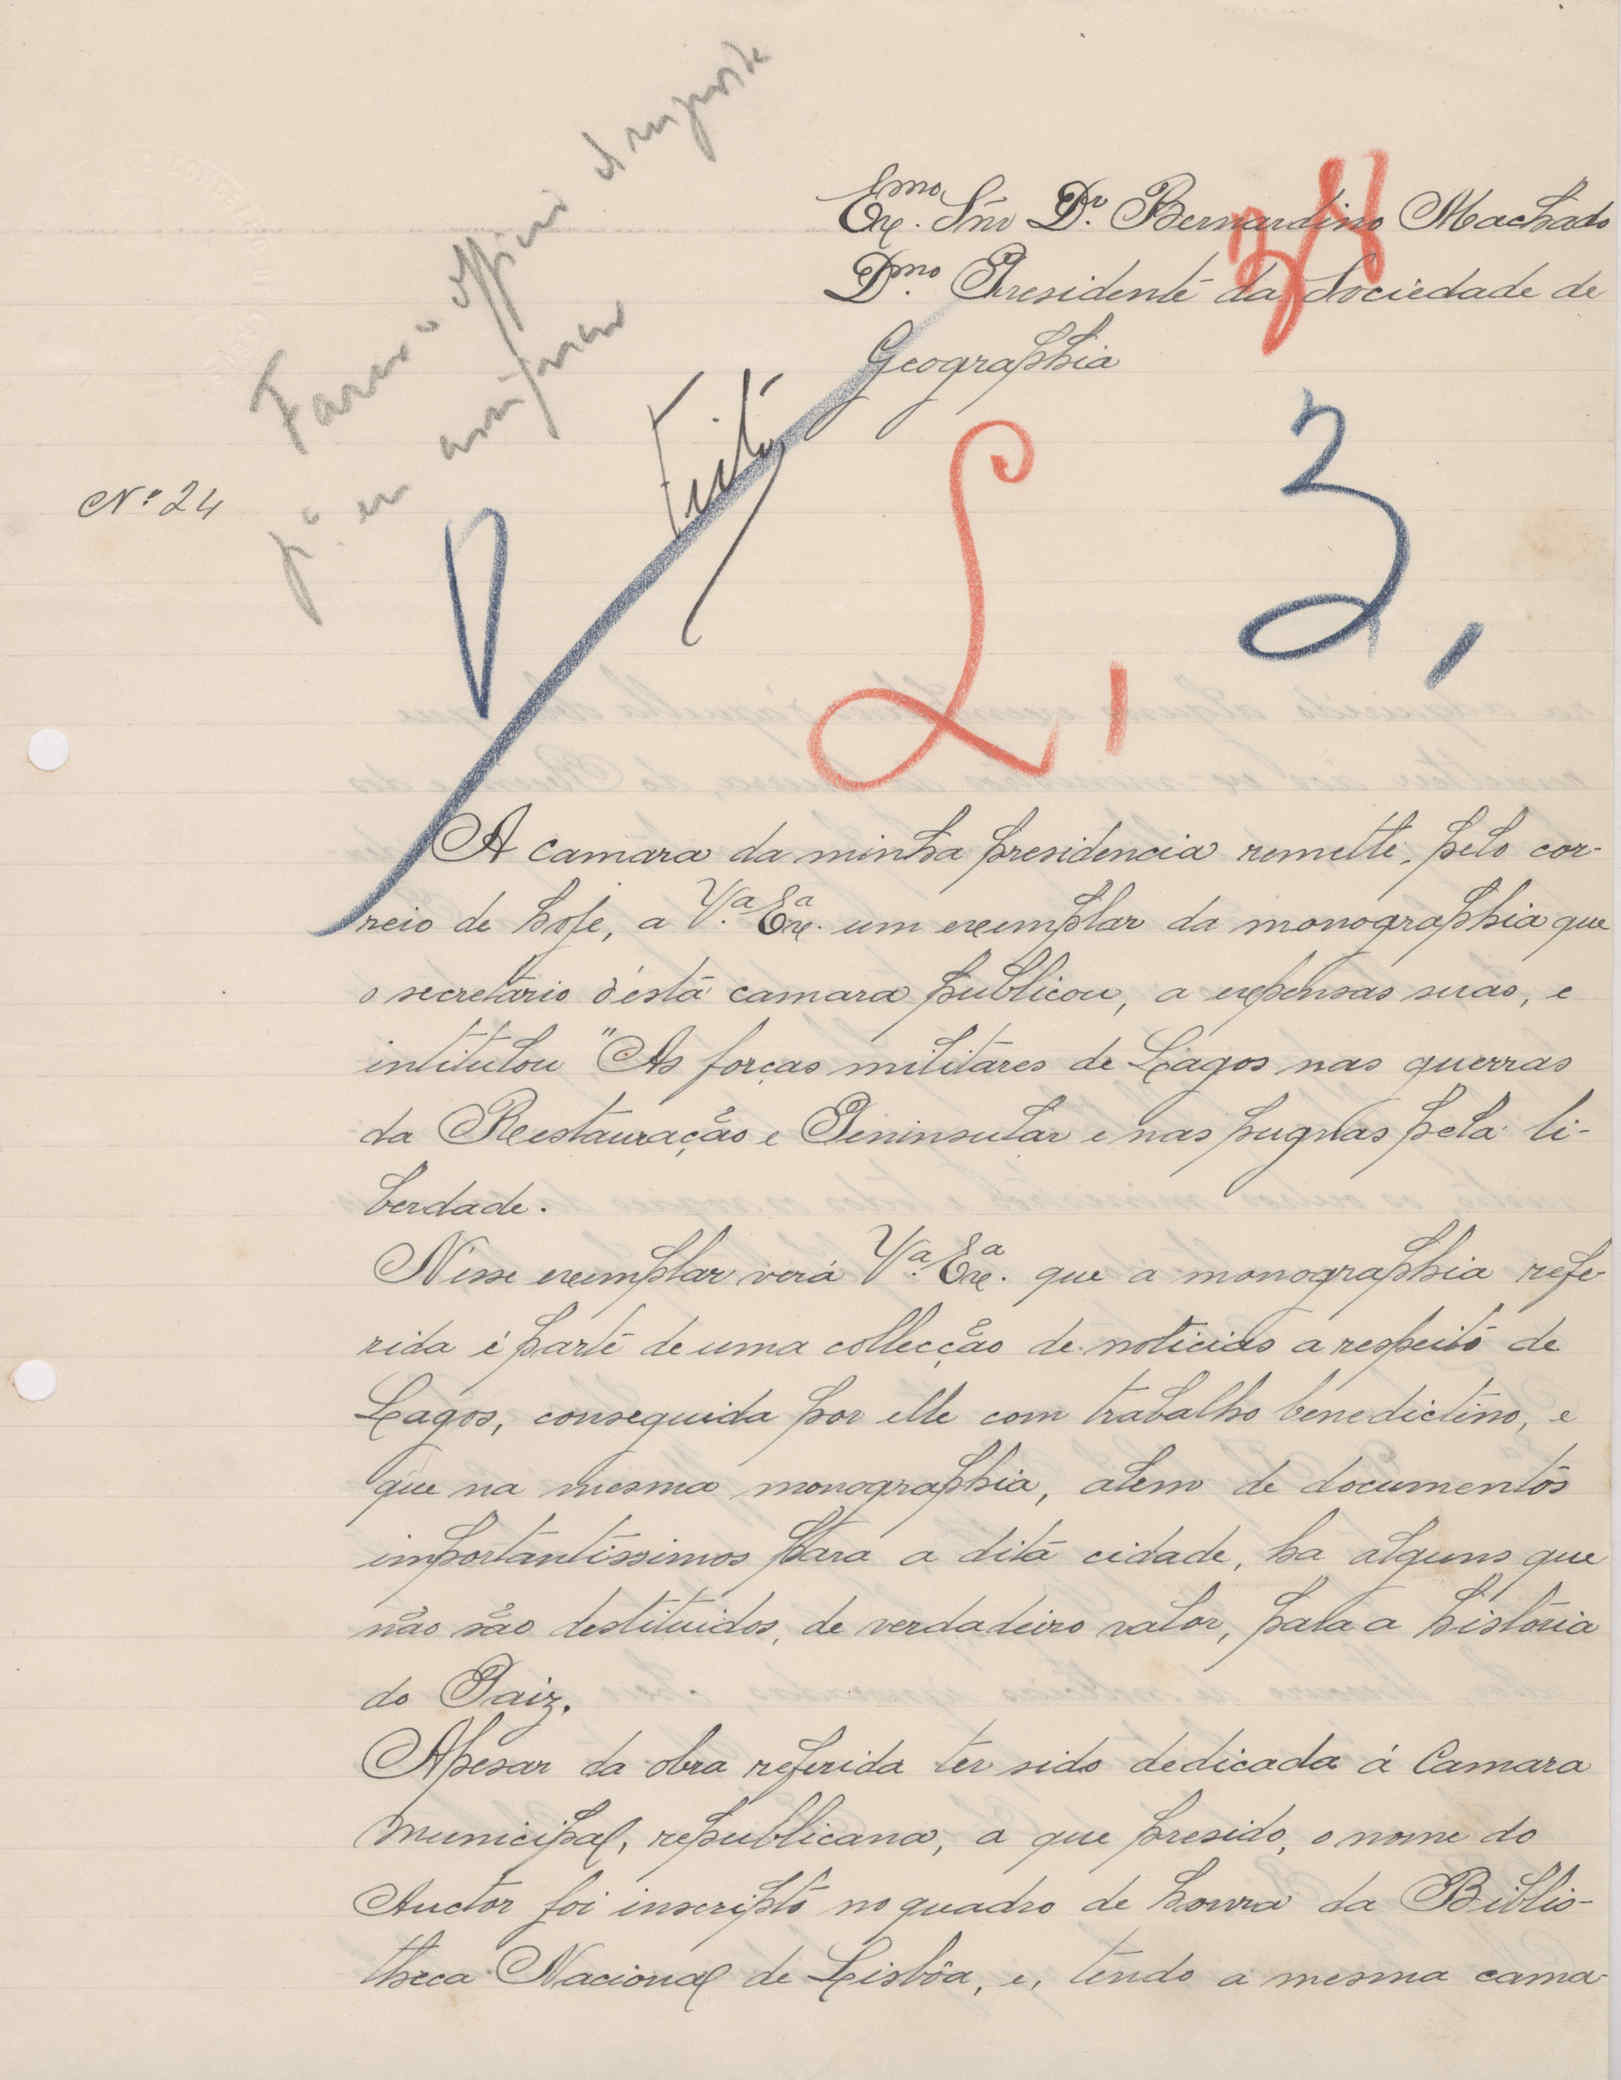 Exmo. Snr Dr. Bernardino Machado
Dmo. Presidente da Sociedade de
Geographia
Nº 24
Feito
L,
3,
A camara da minha presidencia remette, pelo cor-
reio de hoje, a Va. Exa. um exemplar da monographia que
o secretario d'esta camara publicou, a expensas suas, e
intitulou "As forças militares de Lagos nas guerras
da Restauração e Peninsular e nas pugnas pela li-
berdade.
N'esse exemplar verá Va. Exa. que a monographia refe-
rida é parte de uma collecção de noticias a respeito de
Lagos, conseguida por elle com trabalho benedictino, e
que na mesma monographia, alem de documentos
importantissimos para a dita cidade, ha alguns que
não são destituidos, de verdadeiro valor, para a historia
do Paiz.
Apesar da obra referida ter sido dedicada á Camara
Municipal, republicana, a que presido, o nome do
Auctor foi inscripto no quadro de honra da Biblio-
theca Nacional de Lisbôa, e, tendo a mesma cama-